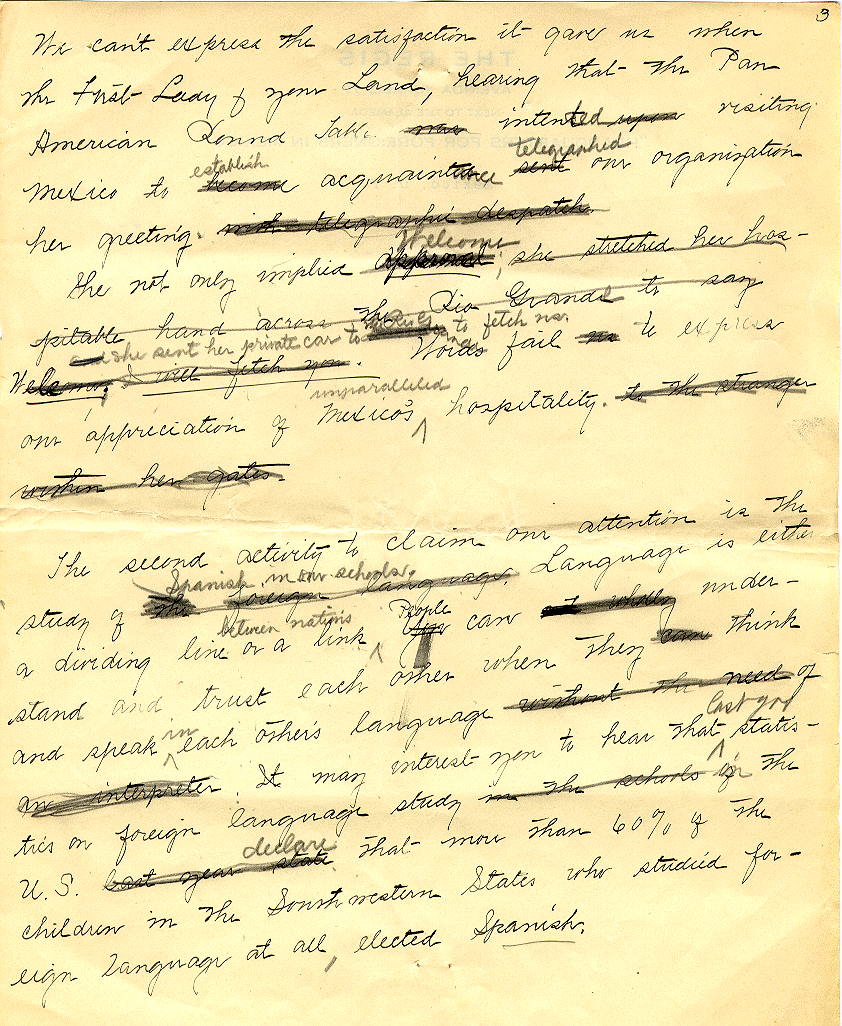 3
We can't express the satisfaction it gave us when
the First Lady of your Land, hearing that the Pan
American Round Table was intended upon visiting
telegraphed
establish
Mexico to become acquaintance sent our organization
her greeting. with telegraphic despatch.
Welcome
She not only implied approval, she stretched her hos-
pitable hand across the Rio Grande to say
and she sent her private car to to fetch us.
Welcome, I will fetch you. Words fail us to express
unparalleled
our appreciation of Mexico's hospitality. to the stranger
within her gates.
The second activity to claim our attention is the
Spanish in our schools.
study of the foreign language. Language is either
between nations People
a dividing line or a link can wholly under-
stand and trust each other when they can think
in
and speak each other's language without the need of
last year
an interpreter. It may interest you to hear that statis-
tics on foreign language study in the schools of the
declare
U.S. last year state that more than 60% of the
children in the Southwestern States who studied for-
eign language at all, elected Spanish.